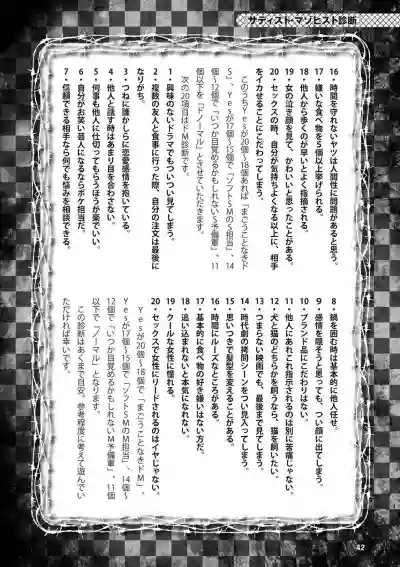 サディスト・マゾヒスト診断
16・時間を守れないヤツは人間性に問題があると思う。
17・嫌いな食べ物を5個以上挙げられる。
18・他人から歩くのが早いとよく指摘される。
19・女の泣き顔を見て、かわいいと思ったことがある。
20・セックスの時、自分が気持ちよくなる以上に、相手
をイカせることにこだわってしまう。
このうちYesが20個〜18個あれば「まごうことなきド
S」、Yesが17個〜15個で「ソフトSMのS担当」、14
個〜12個で「いつか目覚めるかもしれないS予備軍」、11
個以下を「ドノーマル」とさせていただきます。
次の20項目はドM診断です。
1・興味のないドラマでもついつい見てしまう。
2・複数の友人と食事に行った際、自分の注文は最後に
なりがち。
3・つねに誰かしらに恋愛感情を抱いている。
4・他人と話す時はあまり目を合わさない。
5・何事も他人に仕切ってもらうほうが楽でいい。
6・自分がお笑い芸人になるならボケ担当だ。
7・信頼できる相手なら何でも悩みを相談できる。
8・鍋を囲む時は基本的に他人任せ。
9・感情を隠そうと思っても、つい顔に出てしまう。
10・ブランド品にこだわりはない。
11・他人にあれこれ指示されるのは別に苦痛じゃない。
12・犬と猫のどちらかを飼うなら、猫を飼いたい。
13・つまらない映画でも、最後まで見てしまう。
14・時代劇の拷問シーンをつい見入ってしまう。
15・思いつきで髪型を変えることがある。
16・時間にルーズなところがある。
17・基本的に食べ物の好き嫌いはない方だ。
18・追い込まれないと本気になれない。
19・クールな女性に憧れる。
20・セックスで女性にリードされるのはイヤじゃない。
Yesが20個〜18個で「まごうことなきドM」、
Yesが17個〜15個で「ソフトSMのM担当」、14個〜
12個で「いつか目覚めるかもしれないM予備軍」、11個
以下で「ノーマル」となります。
この診断はあくまで目安、参考程度に考えて遊んでい
ただければ幸いです。
42